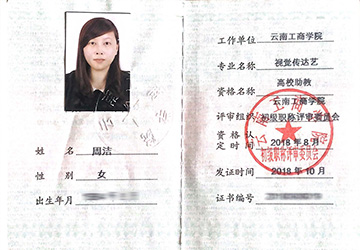 姓 名 周洁
性 别 女
出生年月
工作单位 云南工商学院
专业名称 视觉传达艺
资格名称 高校助教
评审组织 云南工商学院
初级职称评审委员会
资格认定时间 2018年8月
发证时间 2018年10月
证书编号
云南工商学院
初级职称评审委员会